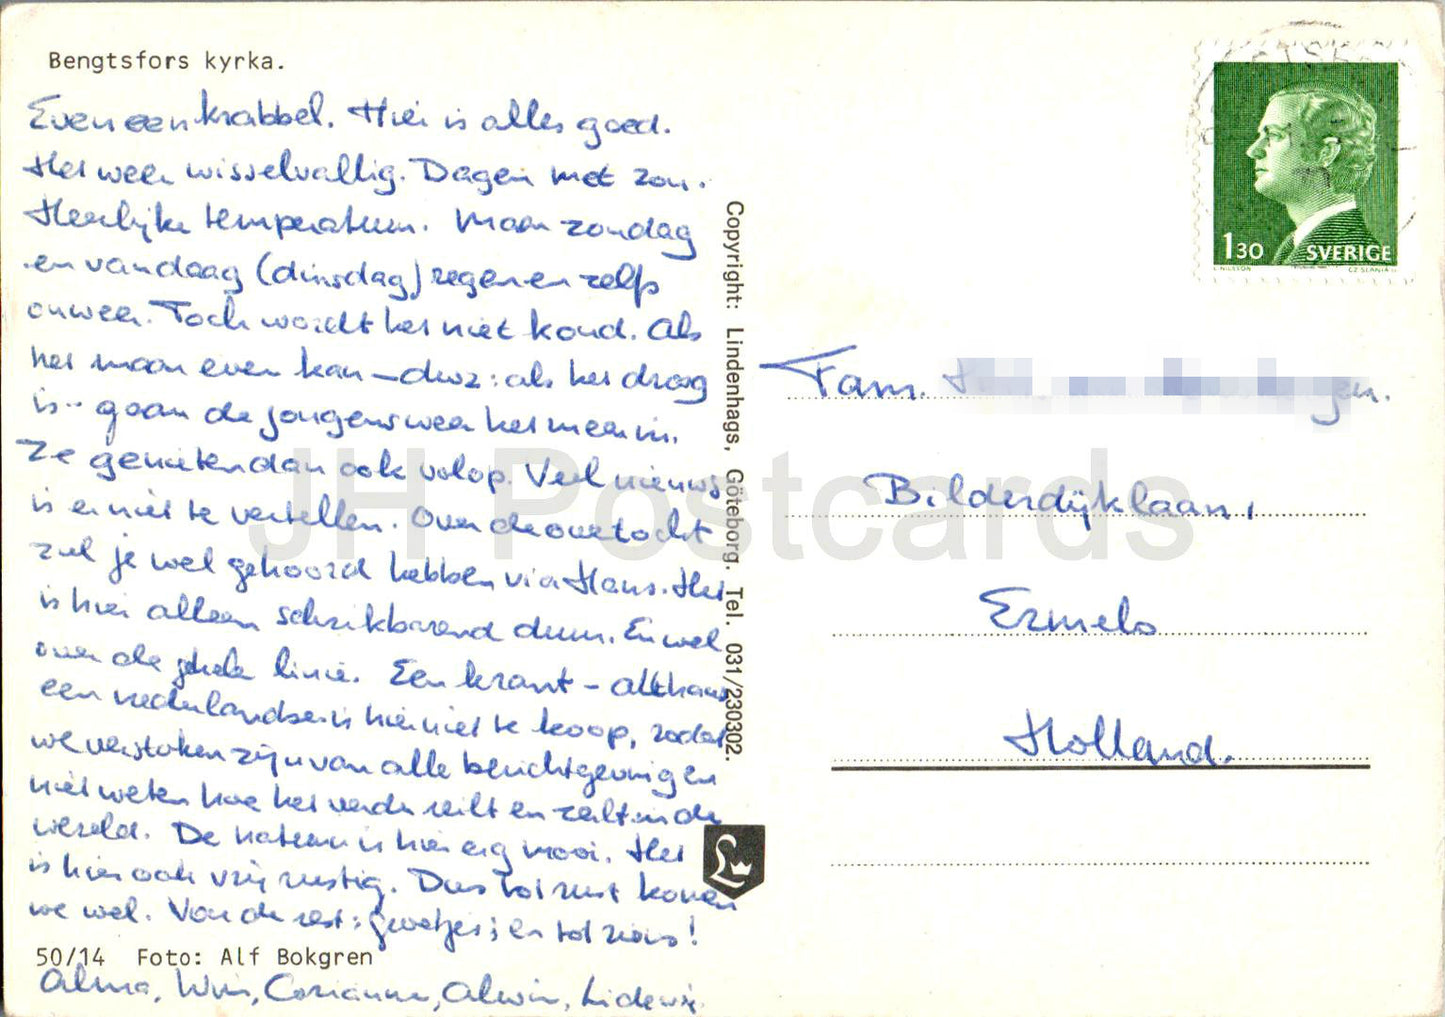 Bengtsfors kyrka.
Even een krabbel. Hier is alles goed.
Het weer wisselvallig. Dagen met zon.
Heerlijke temperatuur. Maar zondag
en vandaag (dinsdag) regen en zelfs
onweer. Toch wordt het niet koud. Als
het maar even kan – dwz: als het droog
is – gaan de jongens weer het meer in.
Ze genieten dan ook volop. Veel nieuws
is er niet te vertellen. Over de overtocht
zul je wel gehoord hebben via Hans. Het
is hier alleen schrikbarend duur. En wel
over de gehele linie. Een krant – althans
een nederlandse is hier niet te koop, zodat
we verstoken zijn van alle berichtgeving en
niet weten hoe het verder reilt en zeilt in de
wereld. De natuur is hier erg mooi. Het
is hier ook vrij rustig. Dus tot rust komen
we wel. Voor de rest: groetjes; en tot ziens!
50/14 Foto: Alf Bokgren
Alma, Wim, Corianne, Alwin, Lidewij.
Copyright: Lindenhags, Göteborg. Tel. 031/230302.
1 30 SVERIGE
L. NILSSON CZ SLANIA
Fam.
Bilderdijklaan,
Ermelo
Holland.
JH Postcards